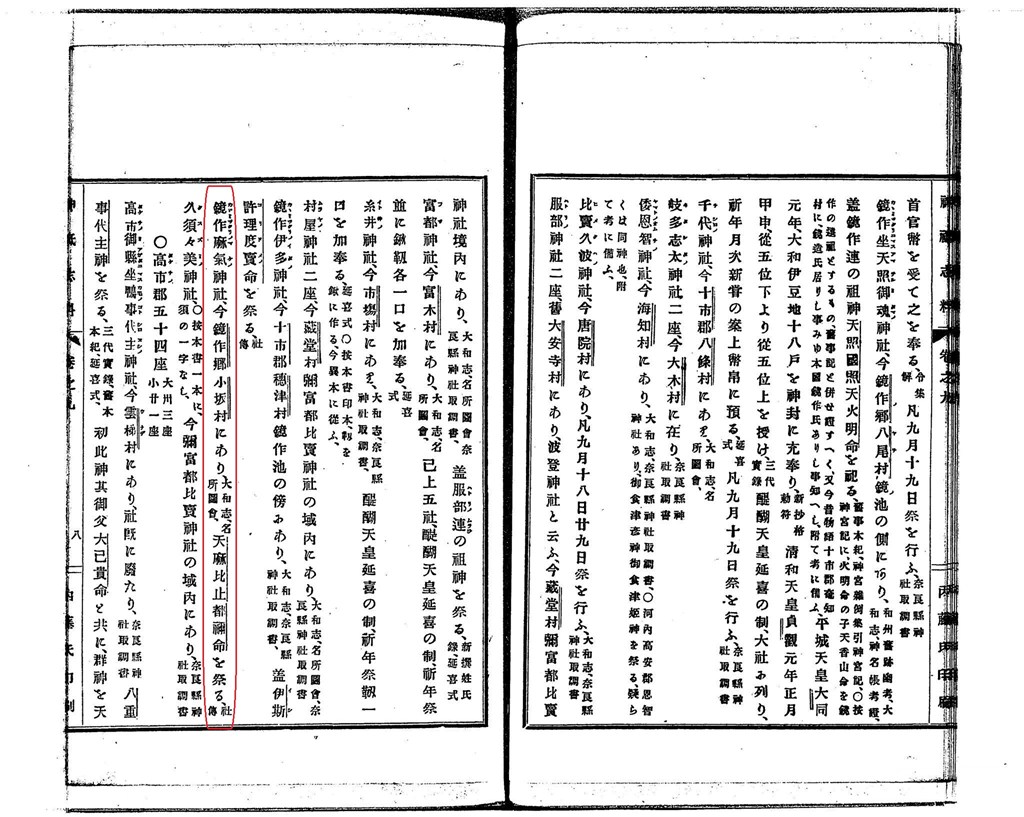 神祇志料 卷之九
首官幣を受て之を奉る、令集解 凡九月十九日祭を行ふ、奈良縣神社取調書
鏡作坐天照御魂神社、今鏡作郷八尾村鏡池の側にあり、
蓋鏡作連の祖神天照國照天火明命を祀る、
元年、大和伊豆地十八戸を神封に充奉り、新抄格勅符 清和天皇貞觀元年正月
甲申、從五位下より從五位上を授け、三代實錄 醍醐天皇延喜の制、大社に列り、
祈年月次新嘗の案上幣帛に預る、延喜式 凡九月十九日祭を行ふ、奈良縣神社取調書
千代神社、今十市郡八條村にあり、大和志、名所圖會、奈良縣神社取調書
岐多志太神社二座、今大木村に在り、奈良縣神社取調書
倭恩智神社、今海知村にあり、大和志、奈良縣神社取調書、〇河內高安郡恩智神社あり、御食津彥神御食津姬神を祭る、疑らくは同神也、附て考に備ふ、
比賣久波神社、今唐院村にあり、凡九月十八日廿九日祭を行ふ、大和志、奈良縣神社取調書
服部神社二座、舊大安寺村にあり、波登神社と云ふ、今藏堂村彌富都比賣
神社境內にあり、大和志、名所圖會、奈良縣神社取調書、 蓋服部連の祖神を祭る、新撰姓氏錄、延喜式
富都神社、今富木村にあり、大和志、名所圖會、 已上五社、醍醐天皇延喜の制、祈年祭
並に鍬靫各一口を加奉る、延喜式
糸井神社、今市場村にあり、大和志、奈良縣神社取調書、 醍醐天皇延喜の制祈年祭靫一
口を加奉る、延喜式〇按本書印本、靫を鍬に作る、今異本に從ふ、
村屋神社二座、今藏堂村彌富都比賣神社の域內にあり、大和志、名所圖會、奈良縣神社取調書、
鏡作伊多神社、今十市郡穗津村鏡作池の傍にあり、大和志、奈良縣神社取調書、 蓋伊斯
許理度賣命を祭る、社傳
鏡作麻氣神社、今鏡作郷小坂村にあり、大和志、名所圖會、 天麻比止都禰命を祭る、社傳
久須々美神社、〇按本書一本に、須の一字なし、 今彌富都比賣神社の域內にあり、奈良縣神社取調書
〇高市郡五十四座 大卅三座 小廿一座
高市御縣坐鴨事代主神社、今雲梯村にあり、社既に廢たり、奈良縣神社取調書 八重
事代主神を祭る、三代實錄、書本紀、延喜式、 初此神其御父大己貴命と共に、群神を天
神祇志料 卷之九
八